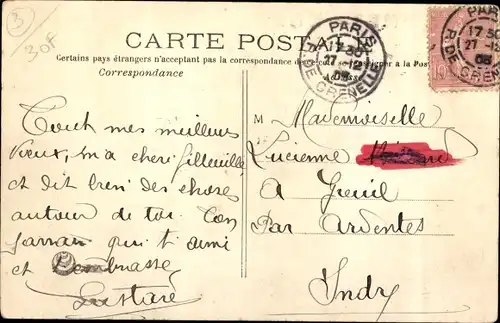 3
30F
CARTE POSTALE
Certains pays étrangers n'acceptant pas la correspondance de ce côté se renseigner à la Poste
Correspondance
Adresse
PARIS
17 30
27-12
05
R. DE GRENELLE
PARIS
17 30
27-
05
R. DE
10
Touch mes meilleurs
Vœux, ma cheri filleuille
et dit bien des choses
autour de toi. Ton
parran qui t'aime
et t'embrasse
M Mademoiselle
Lucienne
A Greuil
Par Ardentes
Indre